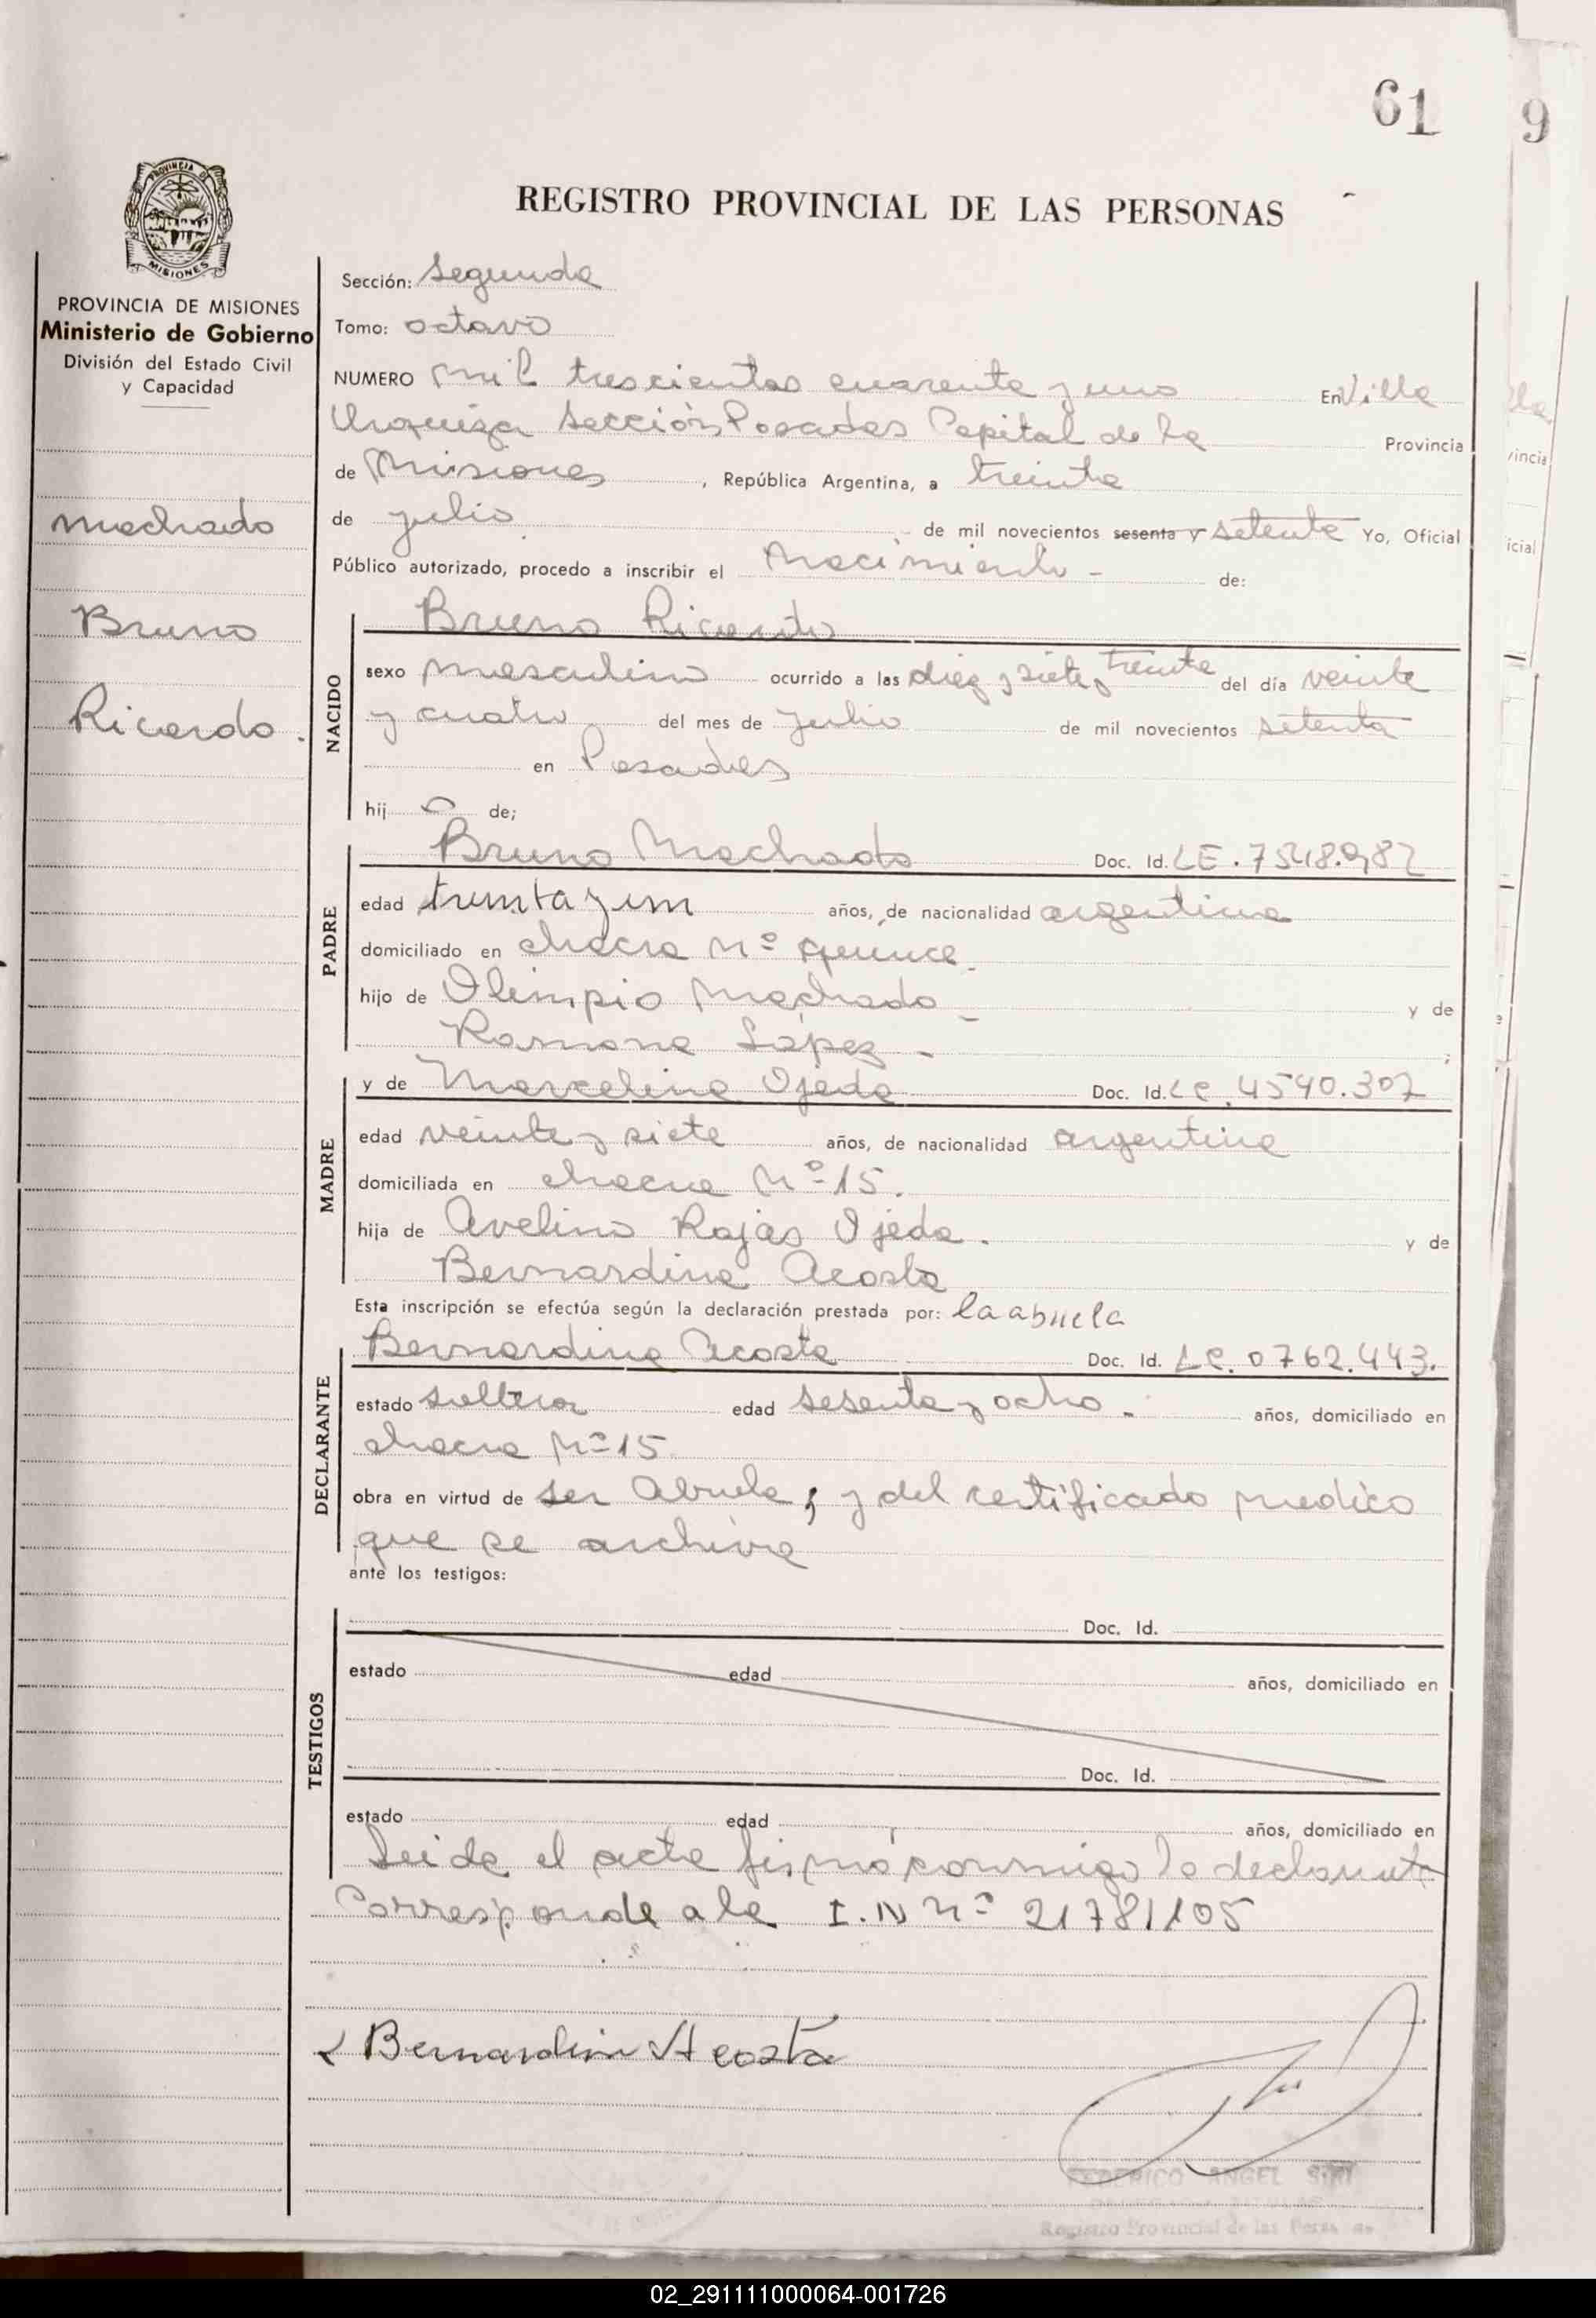 61
9
REGISTRO PROVINCIAL DE LAS PERSONAS
PROVINCIA DE MISIONES
Ministerio de Gobierno
División del Estado Civil
y Capacidad
Machado
Bruno
Ricardo.
Sección: Segunda
Tomo: octavo
NUMERO Mil trescientos cuarenta y uno En Villa
Urquiza Sección Posadas Capital de la Provincia
de Misiones, República Argentina, a treinta
de julio de mil novecientos sesenta y setenta Yo, Oficial
Público autorizado, procedo a inscribir el Nacimiento - de:
NACIDO
Bruno Ricardo
sexo Masculino ocurrido a las diez y siete y treinta del día veinte
y cuatro del mes de julio de mil novecientos setenta
en Posadas
hij o de;
PADRE
Bruno Machado Doc. Id. LE. 7548.982
edad treinta y un años, de nacionalidad argentina
domiciliado en chacra Nº quince.
hijo de Olimpio Machado - y de
Ramona López - ;
MADRE
y de Marcelina Ojeda Doc. Id. LC. 4540.307
edad veinte y siete años, de nacionalidad argentina
domiciliada en chacra Nº 15.
hija de Avelino Rojas Ojeda. y de
Bernardina Acosta
Esta inscripción se efectúa según la declaración prestada por: la abuela
DECLARANTE
Bernardina Acosta Doc. Id. LC. 0762.443.
estado soltera edad sesenta y ocho - años, domiciliado en
chacra Nº 15
obra en virtud de ser Abuela, y del certificado medico
que se archiva
ante los testigos:
TESTIGOS
Doc. Id.
estado edad años, domiciliado en
Doc. Id.
estado edad años, domiciliado en
Leida el acta firmó conmigo la declarante
Corresponde a la I. N Nº 21781105
Bernardina Acosta
FEDERICO ANGEL
Registro Provincial de las Personas
02_291111000064-001726